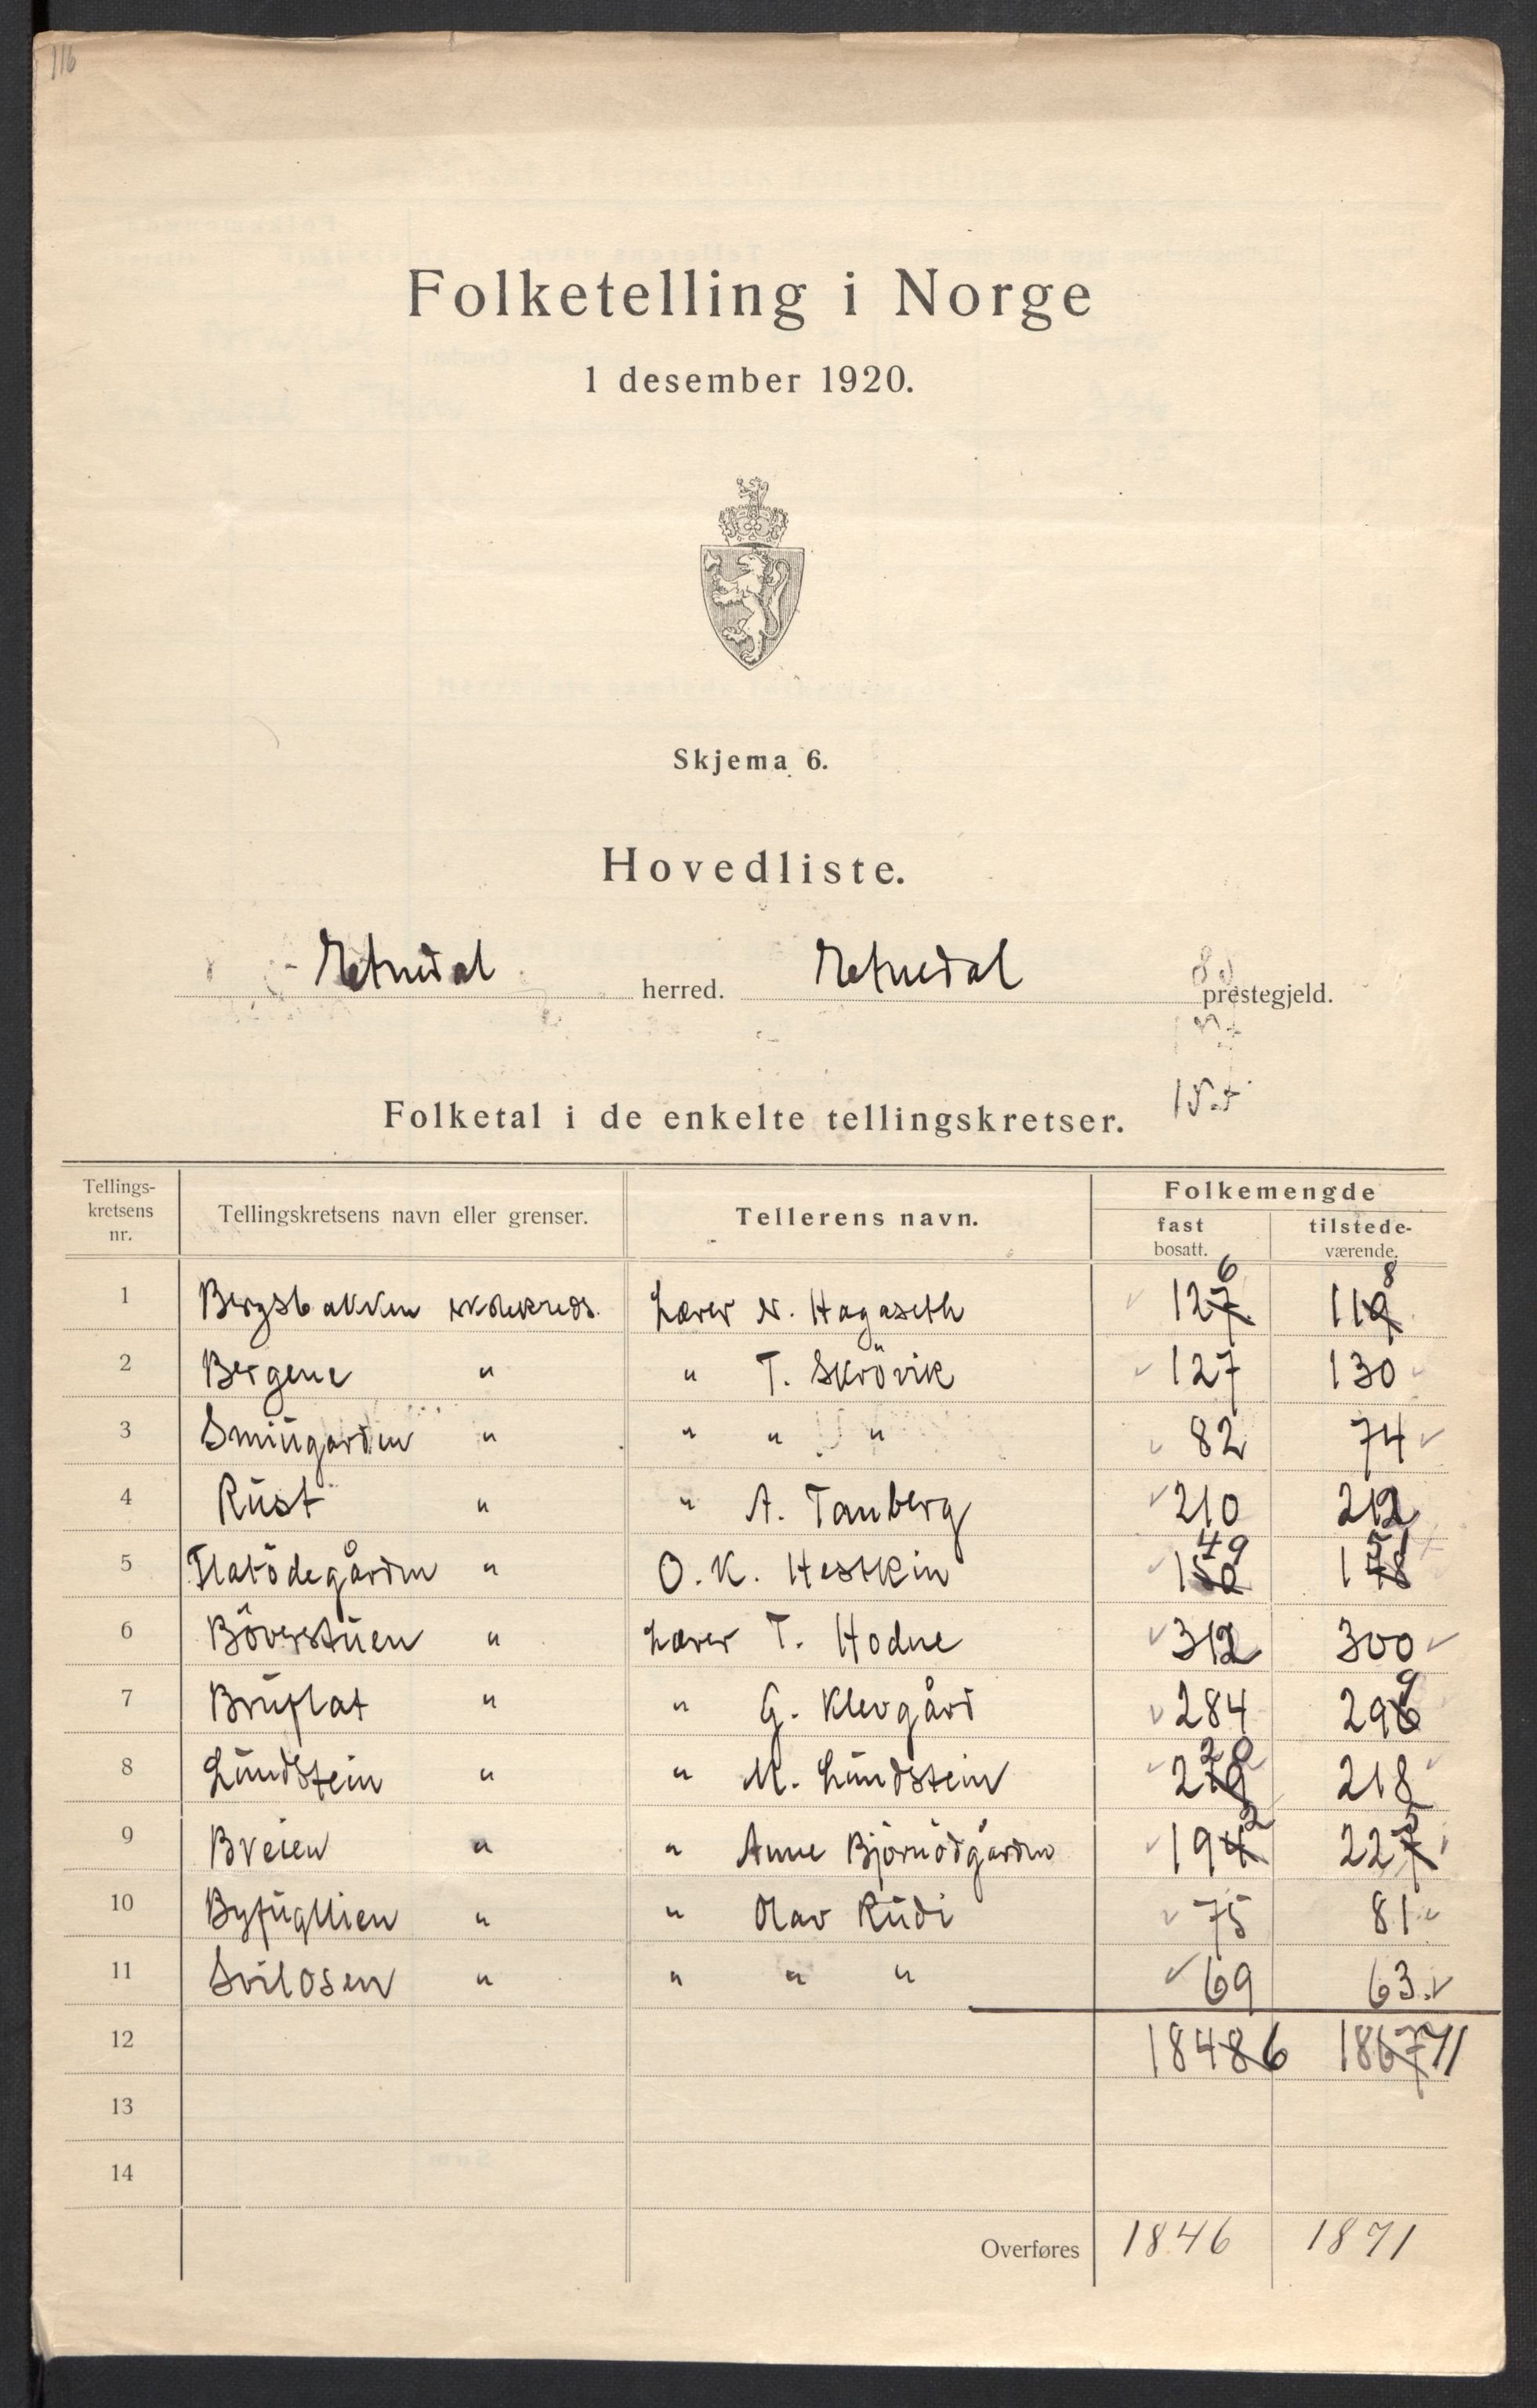 116
Folketelling i Norge
1 desember 1920.
Skjema 6.
Hovedliste.
Etnedal herred. Etnedal prestegjeld.
Folketal i de enkelte tellingskretser.
Tellings-kretsens nr. Tellingskretsens navn eller grenser. Tellerens navn. Folkemengde
fast bosatt. tilstede-værende.
1 Bergsbakken skolekreds. Lærer N. Hagaseth 126 118
2 Bergene " " T. Skrövik 127 130
3 Smiugarden " " " " 82 74
4 Rust " " A. Tanberg 210 212
5 Flatödegården " O. K. Hestkin 149 151
6 Böverstuen " Lærer T. Hodne 312 300
7 Bruflat " " G. Klevgård 284 299
8 Lundstein " " M. Lundstein 220 218
9 Breien " " Anne Björnödgården 192 225
10 Byfugllien " " Olav Rudi 75 81
11 Svilosen " " " " 69 63
12 1846 1871
13
14
Overføres 1846 1871